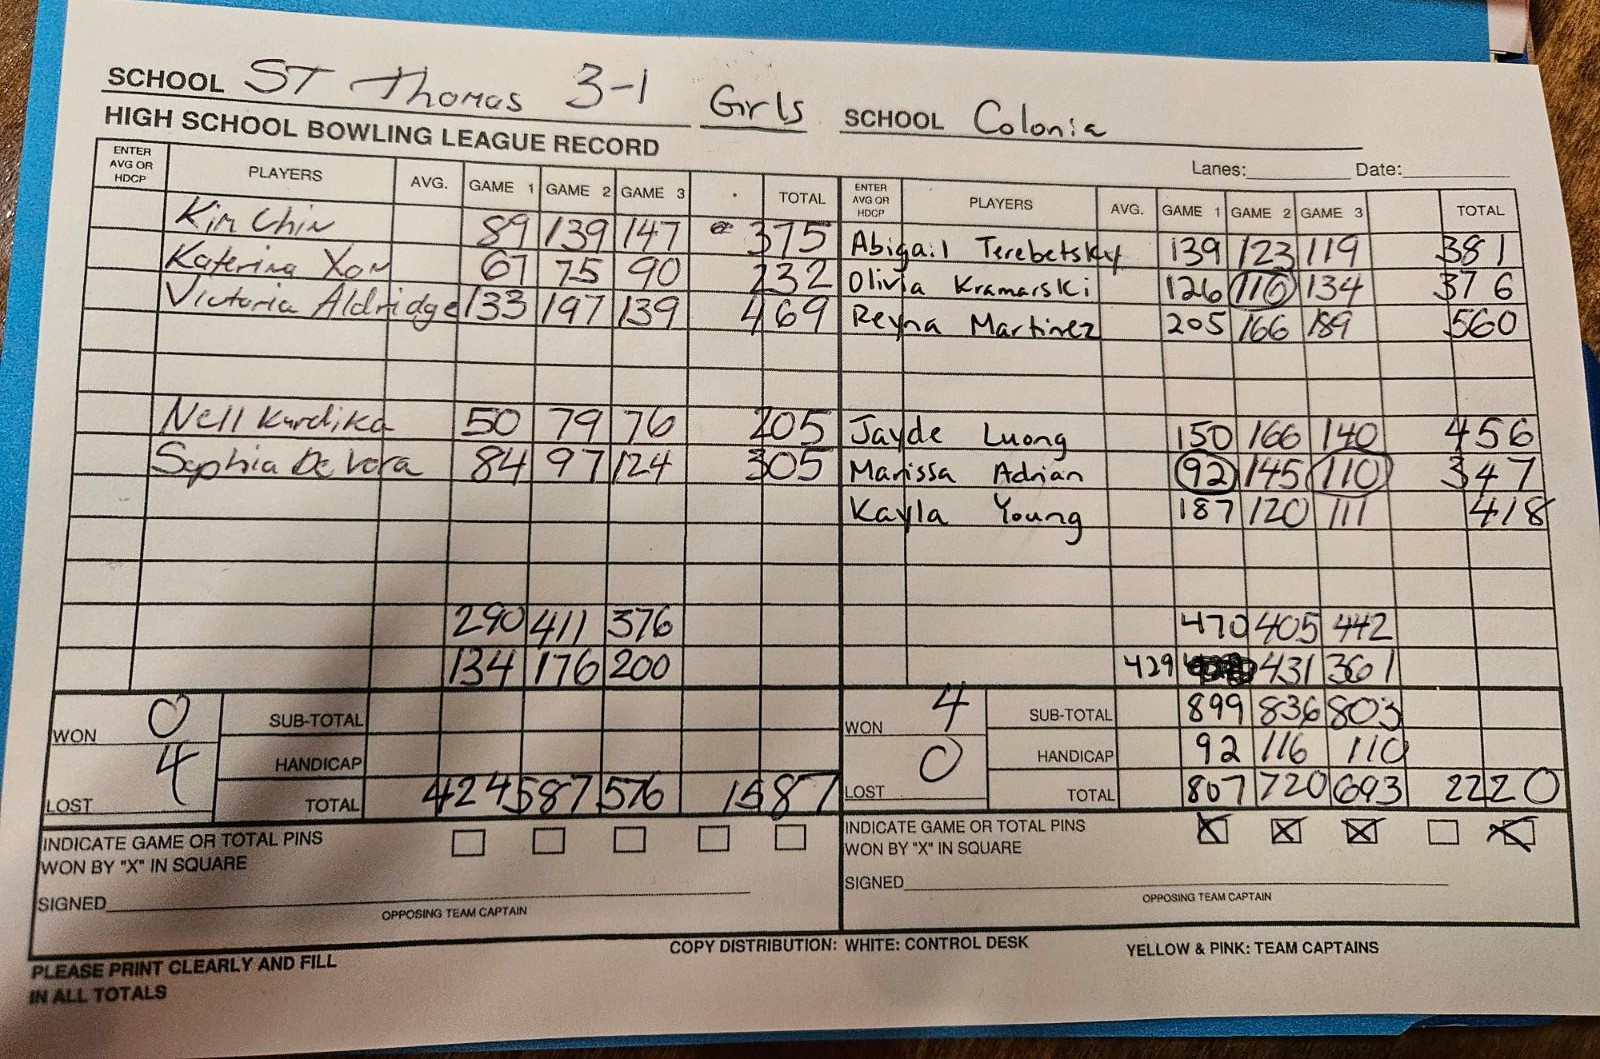 SCHOOL ST Thomas 3-1 Girls SCHOOL Colonia
HIGH SCHOOL BOWLING LEAGUE RECORD
Lanes: Date:
ENTER AVG OR HDCP PLAYERS AVG. GAME 1 GAME 2 GAME 3 TOTAL ENTER AVG OR HDCP PLAYERS AVG. GAME 1 GAME 2 GAME 3 TOTAL
Kim Chin 89 139 147 375 Abigail Terebetsky 139 123 119 381
Katerina Xon 67 75 90 232 Olivia Kramarski 126 116 134 376
Victoria Aldridge 133 197 139 469 Reyna Martinez 205 166 189 560
Nell Kurdika 50 79 76 205 Jayde Luong 150 166 140 456
Sophia De Vera 84 97 124 305 Marissa Adrian 92 145 110 347
Kayla Young 187 120 111 418
290 411 376 470 405 442
134 176 200 429 431 361
WON 0 SUB-TOTAL WON 4 SUB-TOTAL 899 836 803
HANDICAP HANDICAP 92 116 110
LOST 4 TOTAL 424 587 576 1587 LOST 0 TOTAL 807 720 693 2220
INDICATE GAME OR TOTAL PINS INDICATE GAME OR TOTAL PINS
WON BY "X" IN SQUARE WON BY "X" IN SQUARE
SIGNED SIGNED
OPPOSING TEAM CAPTAIN OPPOSING TEAM CAPTAIN
COPY DISTRIBUTION: WHITE: CONTROL DESK YELLOW & PINK: TEAM CAPTAINS
PLEASE PRINT CLEARLY AND FILL
IN ALL TOTALS